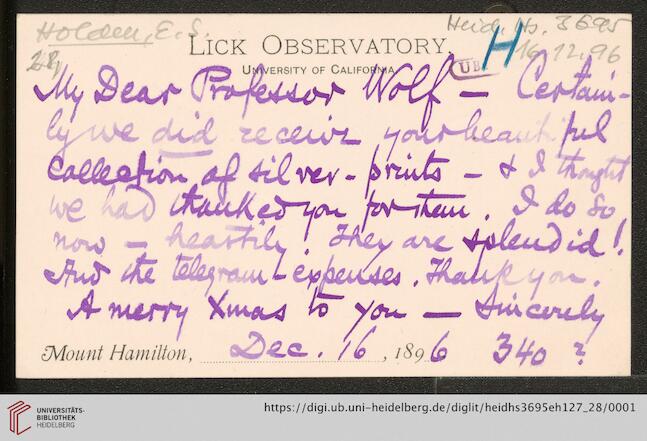 Holden, E. S.
Heid. Hs. 3695
28,
LICK OBSERVATORY
H
16.12.96
UNIVERSITY OF CALIFORNIA
UB
My Dear Professor Wolf — Certain-
ly we did receive your beautiful
collection of silver-prints — & I thought
we had thanked you for them. I do so
now — heartily! They are splendid!
And the telegram-expenses. Thank you.
A merry Xmas to you — Sincerely
Mount Hamilton, Dec. 16, 1896 340 ?
UNIVERSITÄTS-
BIBLIOTHEK
HEIDELBERG
https://digi.ub.uni-heidelberg.de/diglit/heidhs3695eh127_28/0001